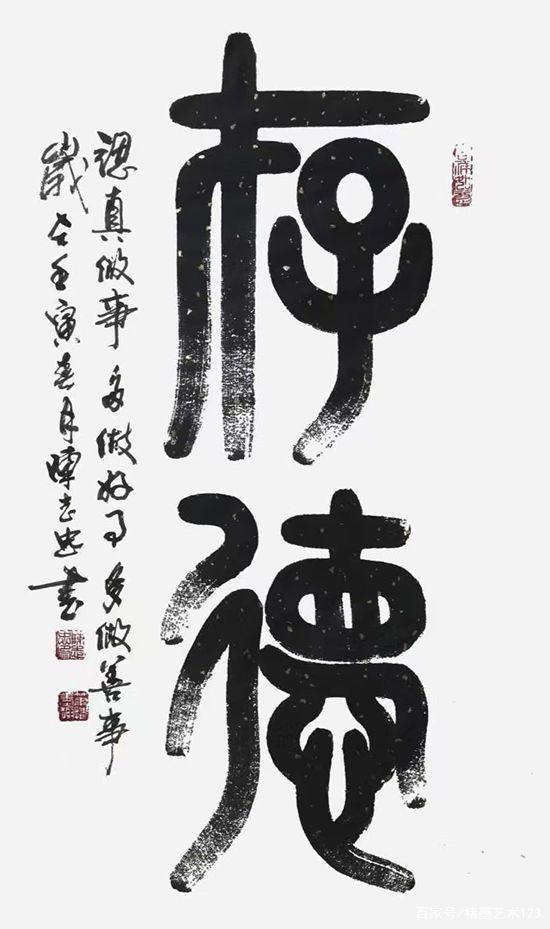 存德
認真做事多做好事多做善事
歲在壬寅春月陳志忠書
百家号/精墨艺术123